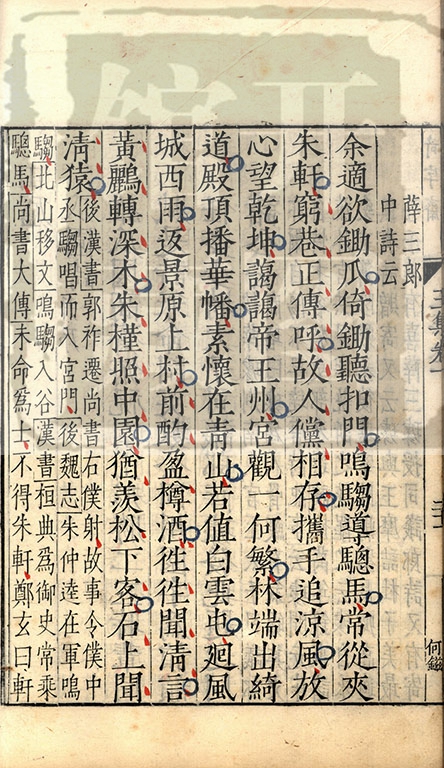 薛三郎
中詩云
余適欲鋤瓜倚鋤聽扣門鳴騶導驄馬常從夾
朱軒窮巷正傳呼故人儻相存攜手追涼風放
心望乾坤藹藹帝王州宮觀一何繁林端出綺
道殿頂播華幡素懷在青山若值白雲屯廻風
城西雨返景原上村前酌盈樽酒往往聞清言
黃鸝轉深木朱槿照中園猶羨松下客石上聞
清猿
後漢書郭祚遷尚書右僕射故事令僕中
丞騶唱而入宮門後魏志朱仲逵在軍鳴
騶北山移文鳴騶入谷漢書桓典為御史常乘
驄馬尚書大傳未命為士不得朱軒鄭玄曰軒
何鎡